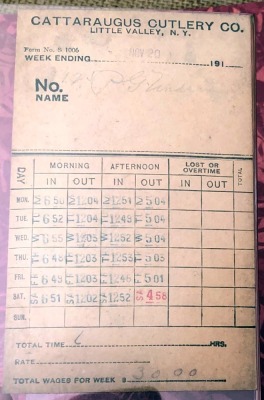 CATTARAUGUS CUTLERY CO.
LITTLE VALLEY, N. Y.
Form No. S 1006
WEEK ENDING NOV 20 191
No. 12
NAME
DAY MORNING AFTERNOON LOST OR OVERTIME TOTAL
IN OUT IN OUT IN OUT
MON. 12.04 1251 5 04
TUE. 6 52 12.04 12 49 5 04
WED. 6 55 1203 1252 5 04
THU. 6 48 1203 1253 5 05
FRI. 6 49 1203 12 46 5 01
SAT. 6 51 1202 1252 4 58
SUN.
TOTAL TIME HRS.
RATE
TOTAL WAGES FOR WEEK $ 30.00